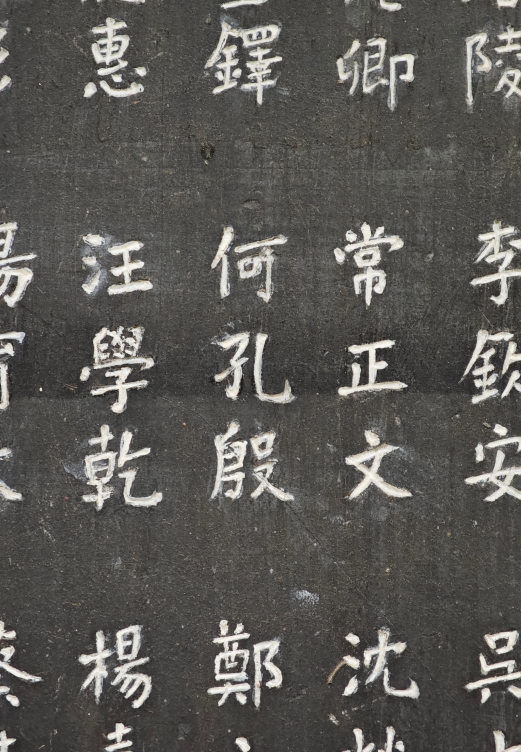 陵
卿
鐸
惠
李欽安
常正文
何孔殷
汪學乾
吳
沈
鄭
楊
蔡